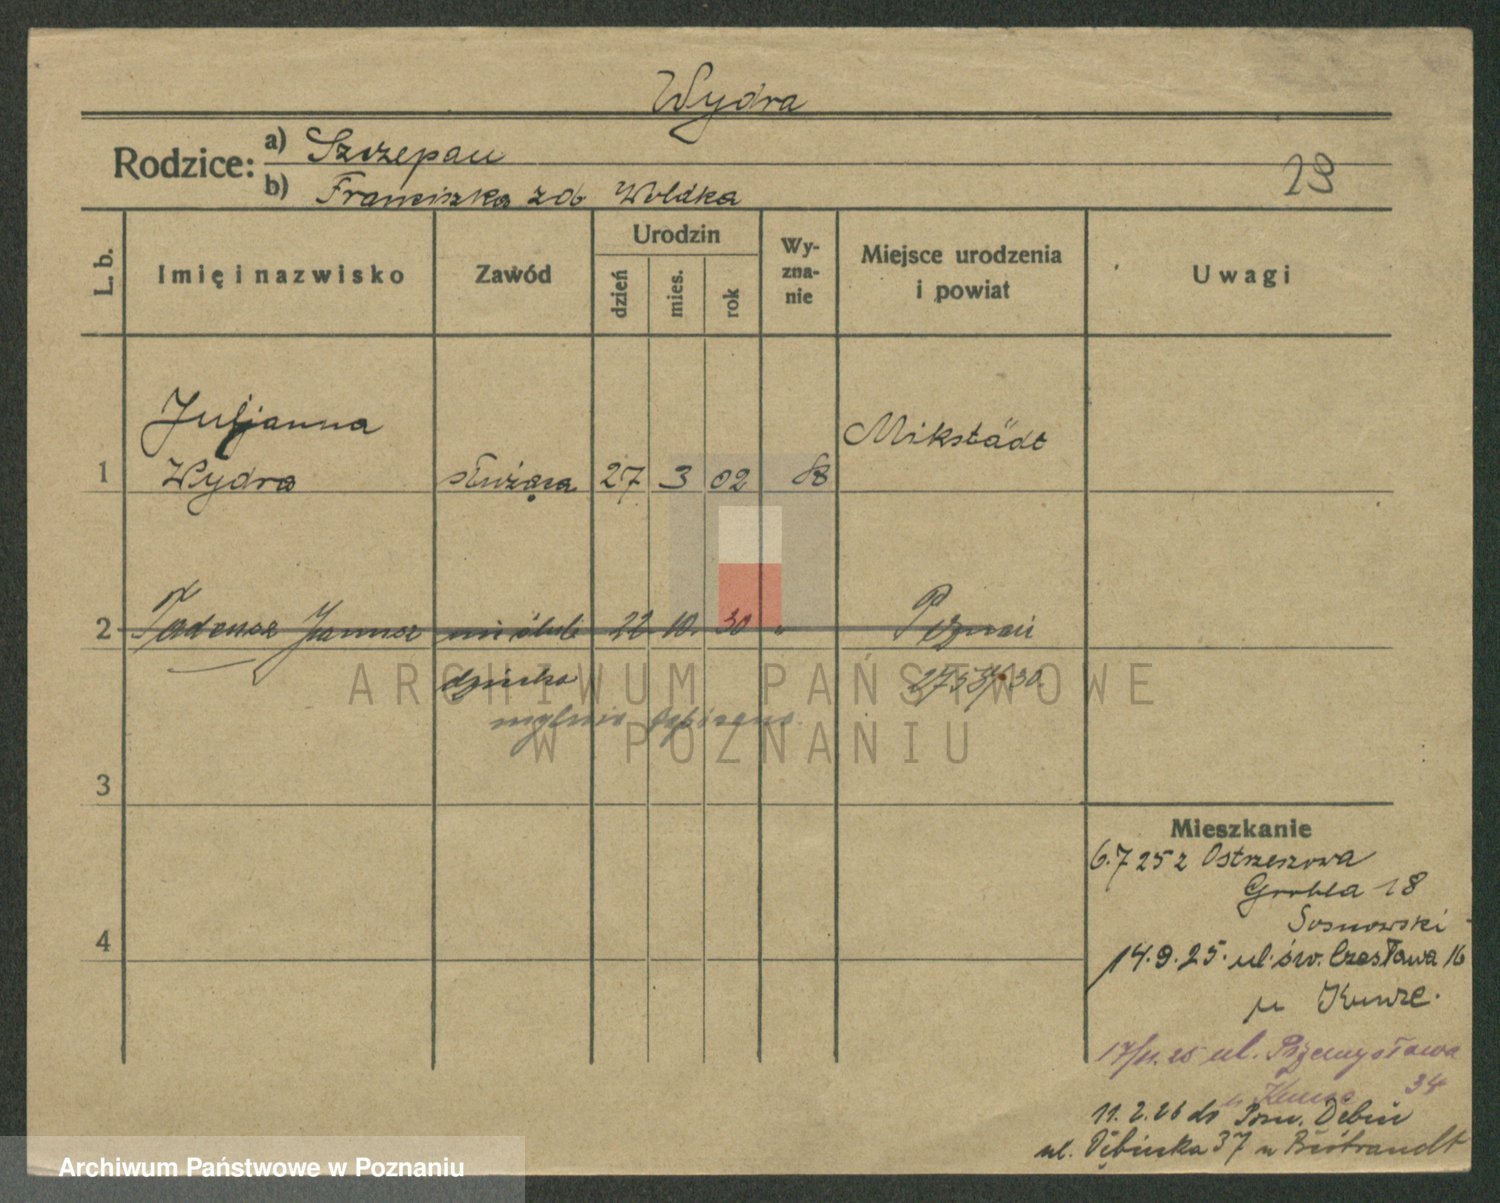 Wydra
Rodzice: a) Szczepan
b) Franciszka z d. Woldka
28
L. b. Imię i nazwisko Zawód Urodzin dzień mies. rok Wy-zna-nie Miejsce urodzenia i powiat Uwagi
Juljanna Mikstädt
1 Wydra służąca 27 3 02
2 Tadeusz Janusz nieślub 22 10. 30 " Poznań
dziecko
mylnie zapisane.
3
Mieszkanie
6.7 25 z Ostrzeszowa
Grobla 18
Sosnowski
4
14.9.25. ul. św. Czesława 16
u Kunze.
17/11.25 ul. Przemysława
u Kunze 34
11.2.26 do Pozn. Dębiń
ul. Dębińska 37 u
ARCHIWUM PAŃSTWOWE
W POZNANIU
Archiwum Państwowe w Poznaniu